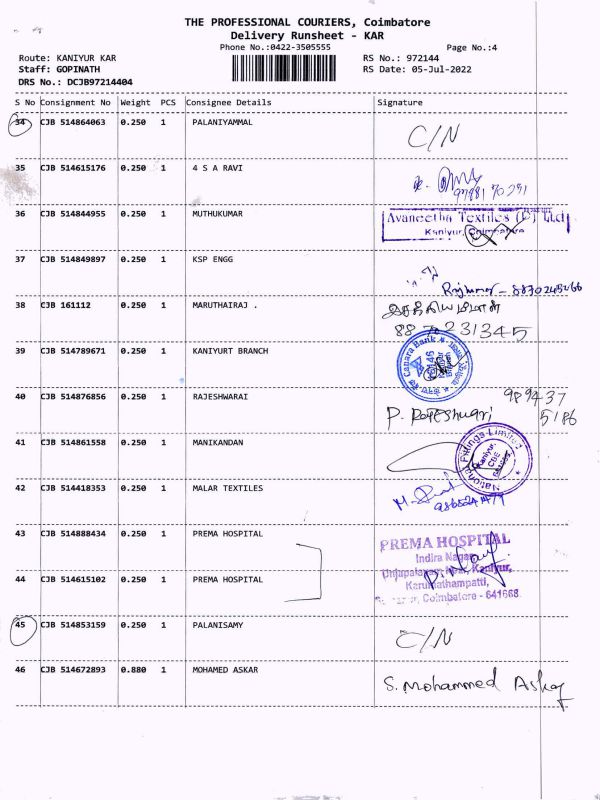 THE PROFESSIONAL COURIERS, Coimbatore
Delivery Runsheet - KAR
Phone No.:0422-3505555
Page No.:4
Route: KANIYUR KAR
RS No.: 972144
Staff: GOPINATH
RS Date: 05-Jul-2022
DRS No.: DCJB97214404
S No Consignment No Weight PCS Consignee Details Signature
34 CJB 514864063 0.250 1 PALANIYAMMAL
C/N
35 CJB 514615176 0.250 1 4 S A RAVI
36 CJB 514844955 0.250 1 MUTHUKUMAR
Avaneetha Textiles (P) Ltd
Kaniyur, Coimbatore
37 CJB 514849897 0.250 1 KSP ENGG
38 CJB 161112 0.250 1 MARUTHAIRAJ .
39 CJB 514789671 0.250 1 KANIYURT BRANCH
Canara Bank
40 CJB 514876856 0.250 1 RAJESHWARAI
989437
P. Rajeshwari 5186
41 CJB 514861558 0.250 1 MANIKANDAN
Limited
Kaniyur,
CBE
42 CJB 514418353 0.250 1 MALAR TEXTILES
43 CJB 514888434 0.250 1 PREMA HOSPITAL
PREMA HOSPITAL
Indira Nagar,
Kaniyur,
44 CJB 514615102 0.250 1 PREMA HOSPITAL
Karumathampatti,
Coimbatore - 641668.
45 CJB 514853159 0.250 1 PALANISAMY
C/N
46 CJB 514672893 0.880 1 MOHAMED ASKAR
S. Mohammed Askar